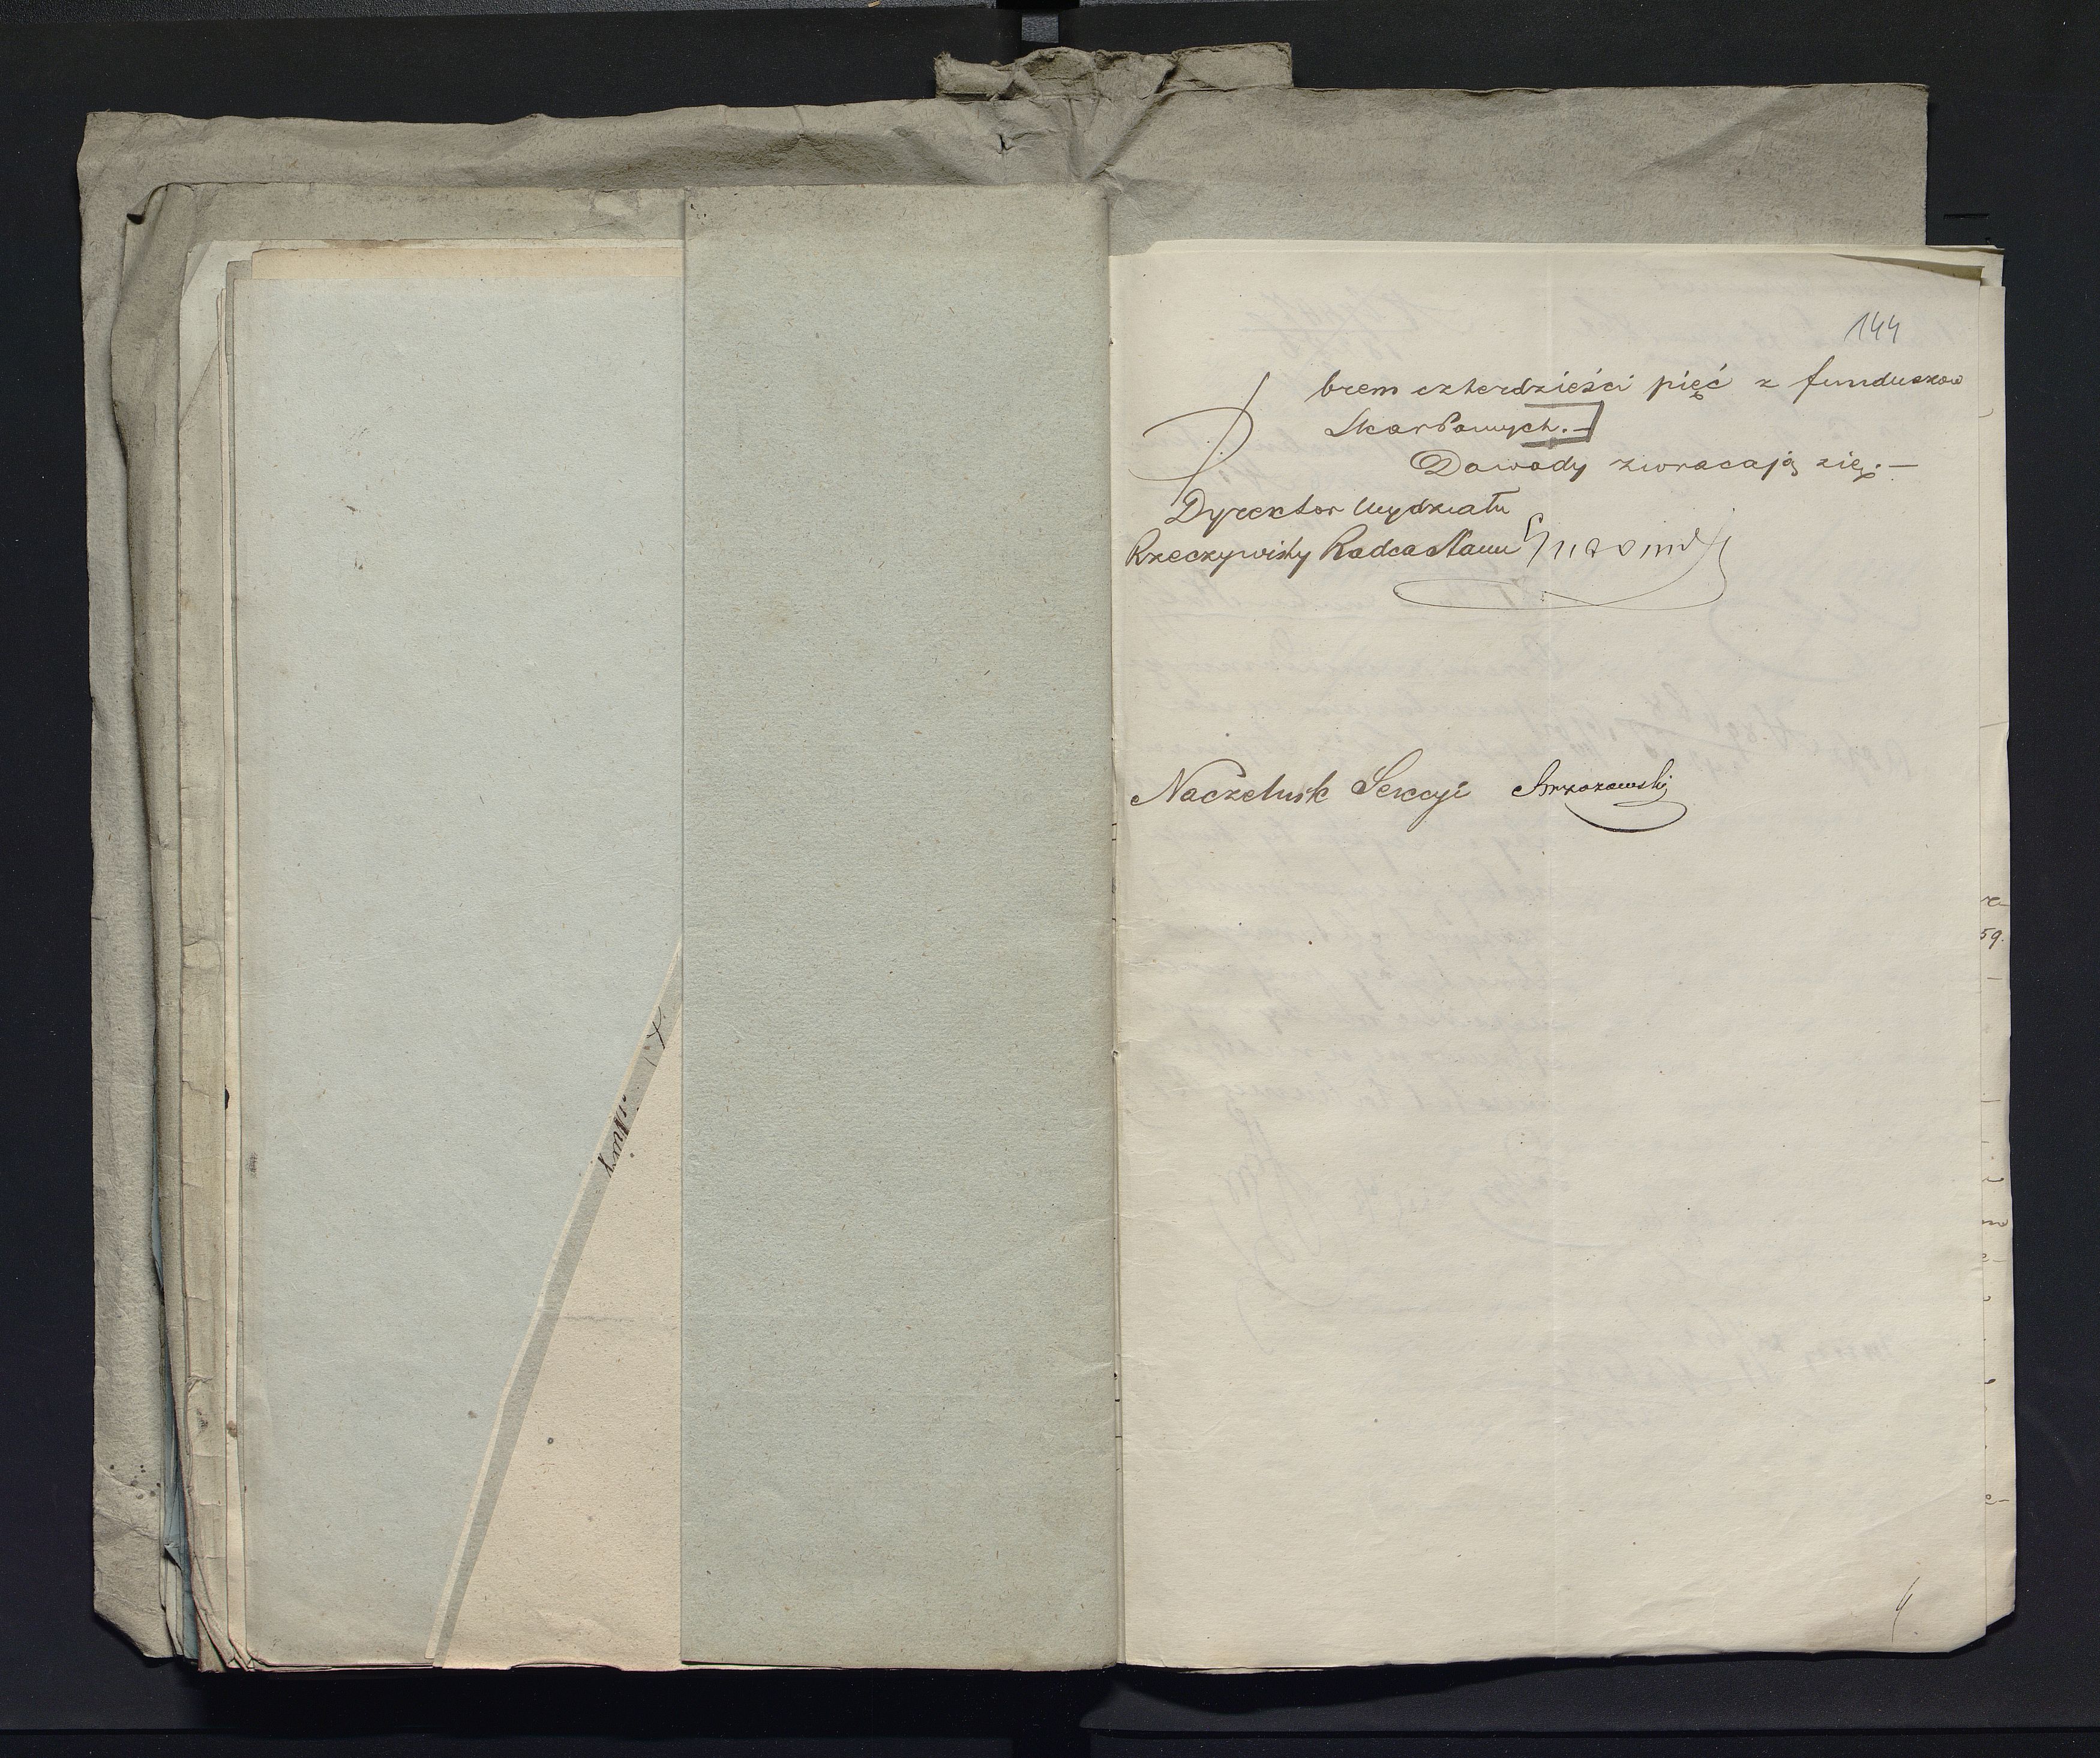 144
brem czterdzieści pięć z funduszow
Skarbowych.—
Dowody zwracają się.—
Dyrektor Wydziału
Rzeczywisty Radca Stanu
Naczelnik Sekcyi Brzozowski